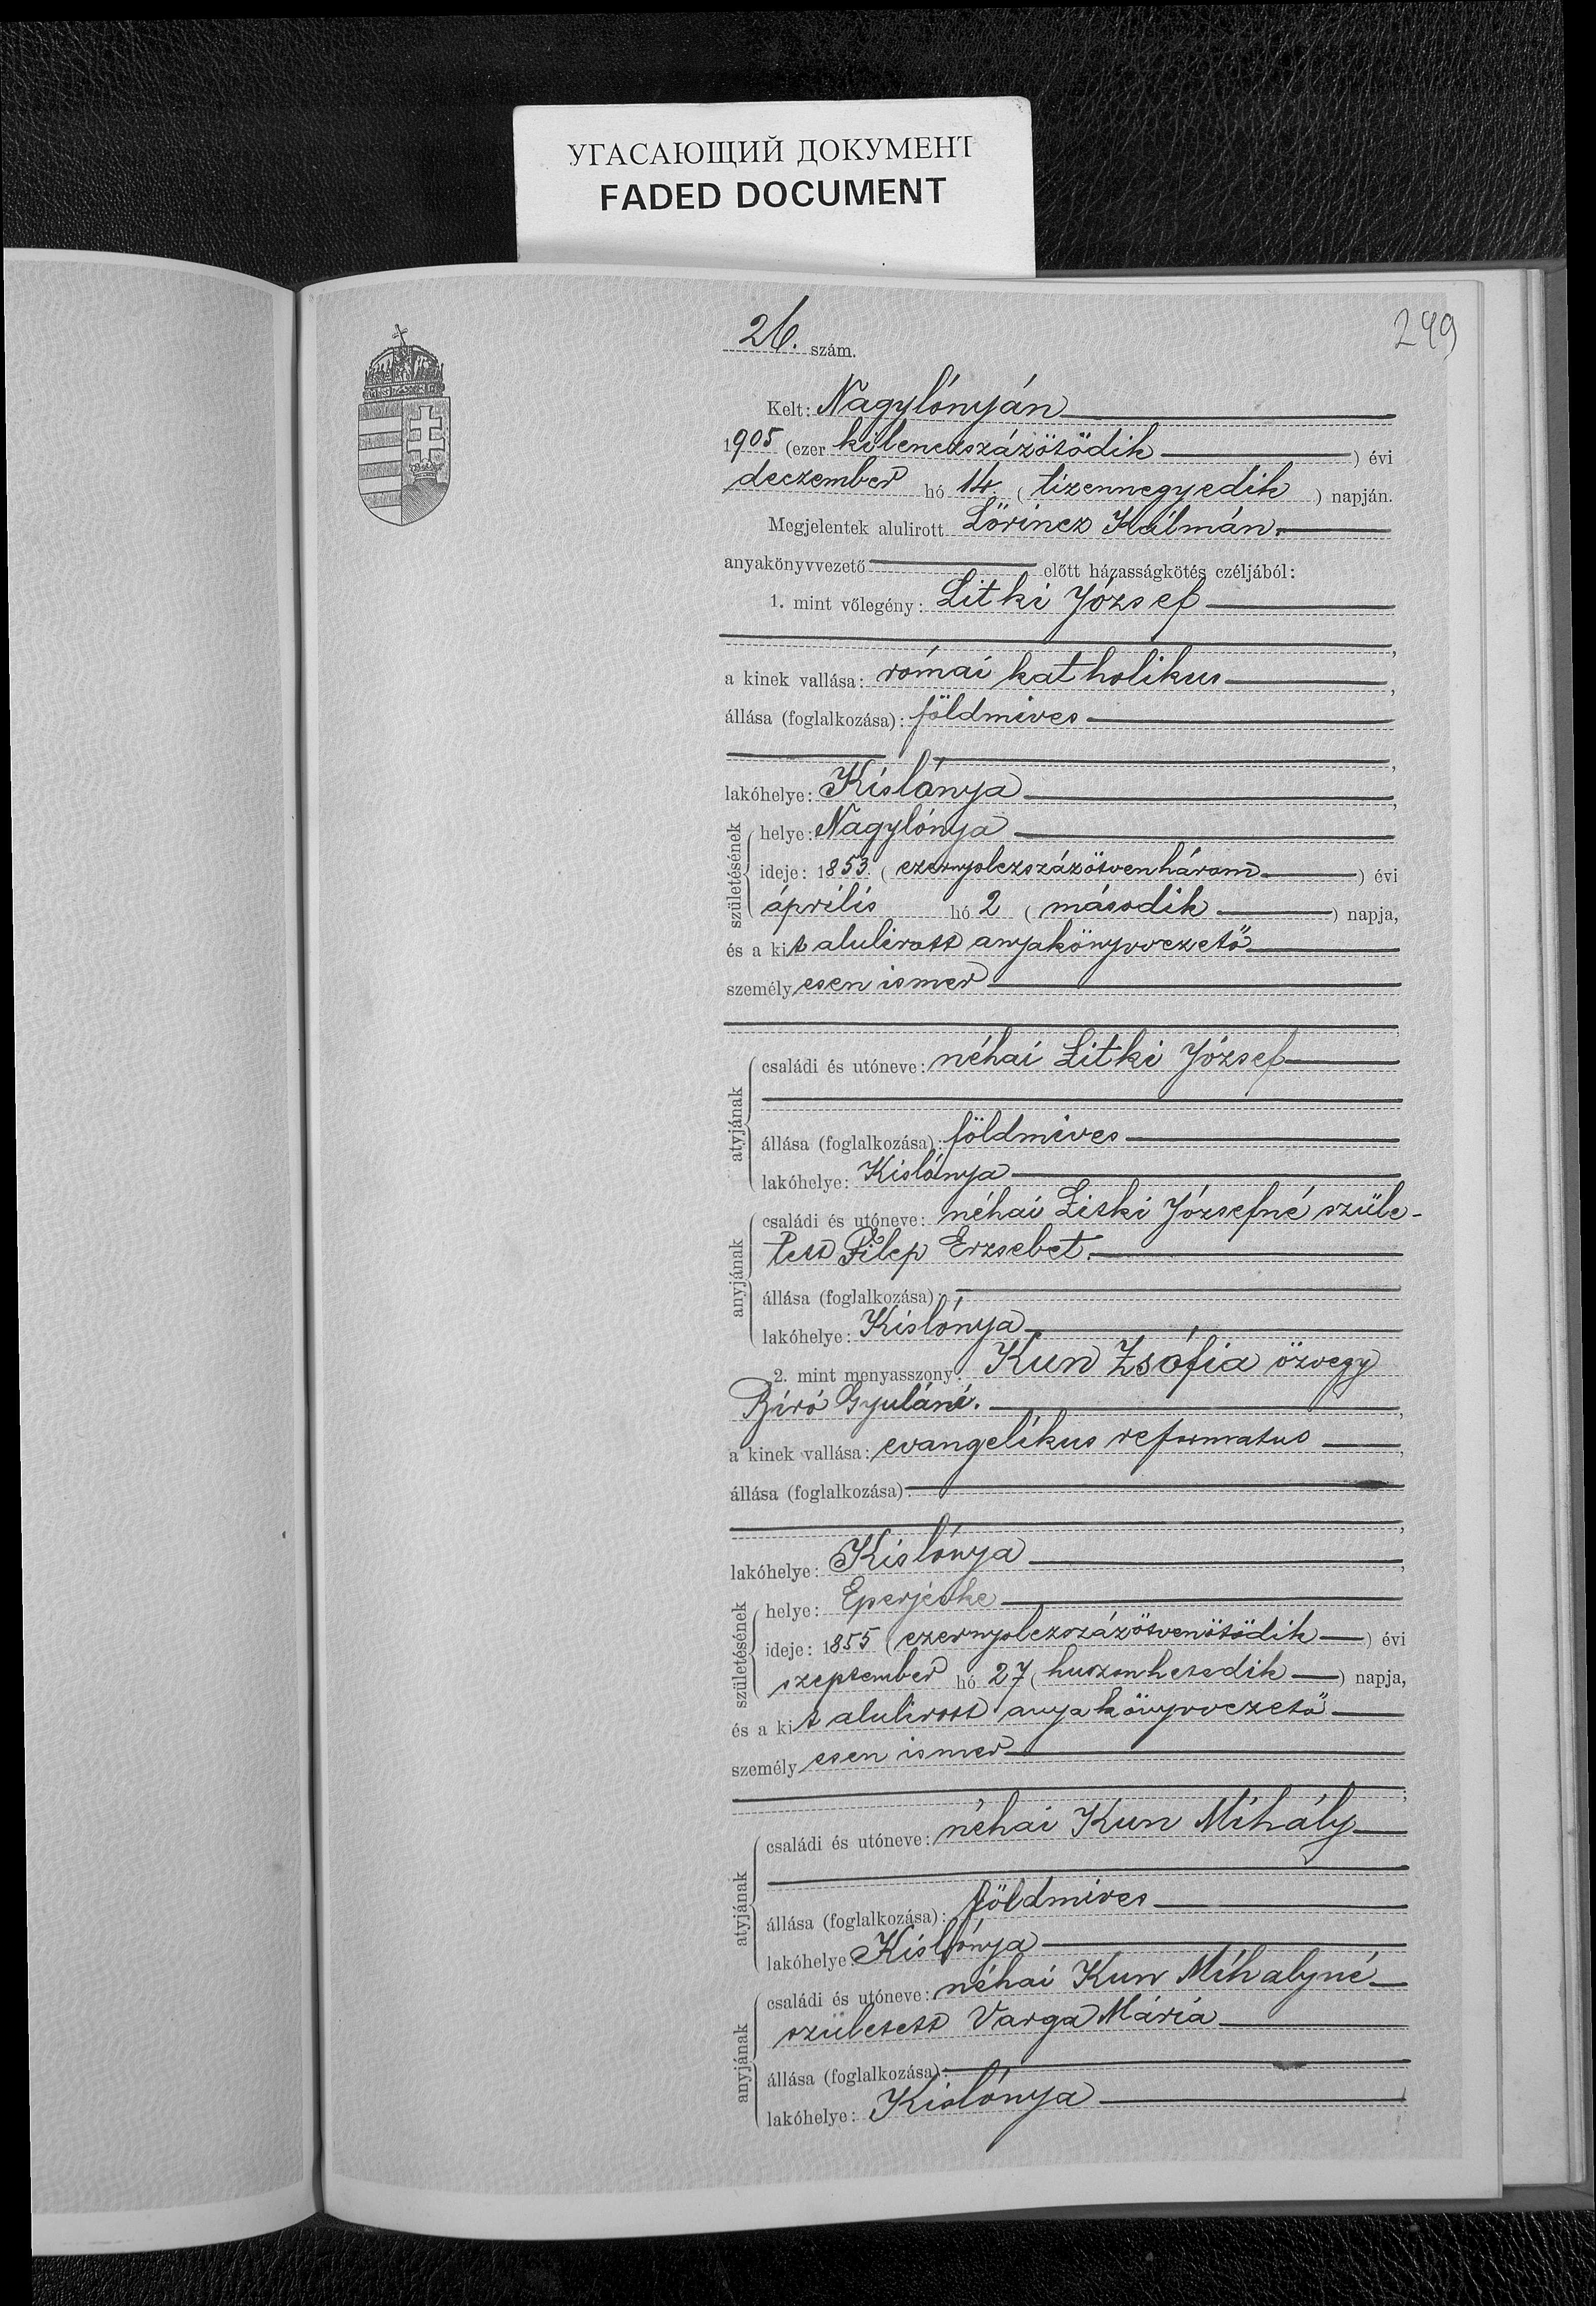 УГАСАЮЩИЙ ДОКУМЕНТ
FADED DOCUMENT
249
26. szám.
Kelt: Nagylónyán
1905 (ezer kilenczszázötödik) évi
deczember hó 14. (tizennegyedik) napján.
Megjelentek alulirott Lőrincz Kálmán.
anyakönyvvezető előtt házasságkötés czéljából:
1. mint vőlegény: Litki József
a kinek vallása: római katholikus,
állása (foglalkozása): földmives
lakóhelye: Kislónya,
születésének
helye: Nagylónya
ideje: 1853. (ezernyolczszázötvenhárom) évi
április hó 2 (második) napja,
és a kit alulirott anyakönyvvezető
személyesen ismer
atyjának
családi és utóneve: néhai Litki József
állása (foglalkozása): földmives
lakóhelye: Kislónya
anyjának
családi és utóneve: néhai Litki Józsefné szüle-
tett Filep Erzsebet.
állása (foglalkozása):
lakóhelye: Kislónya
2. mint menyasszony: Kun Zsófia özvegy
Biró Gyuláné.
a kinek vallása: evangelikus reformatus,
állása (foglalkozása):
lakóhelye: Kislónya,
születésének
helye: Eperjeske
ideje: 1855 (ezernyolczszázötvenötödik) évi
szeptember hó 27 (huszonhetedik) napja,
és a kit alulirott anyakönyvvezető
személyesen ismer
atyjának
családi és utóneve: néhai Kun Mihály
állása (foglalkozása): földmives
lakóhelye: Kislónya
anyjának
családi és utóneve: néhai Kun Mihalyné
született Varga Mária
állása (foglalkozása):
lakóhelye: Kislónya